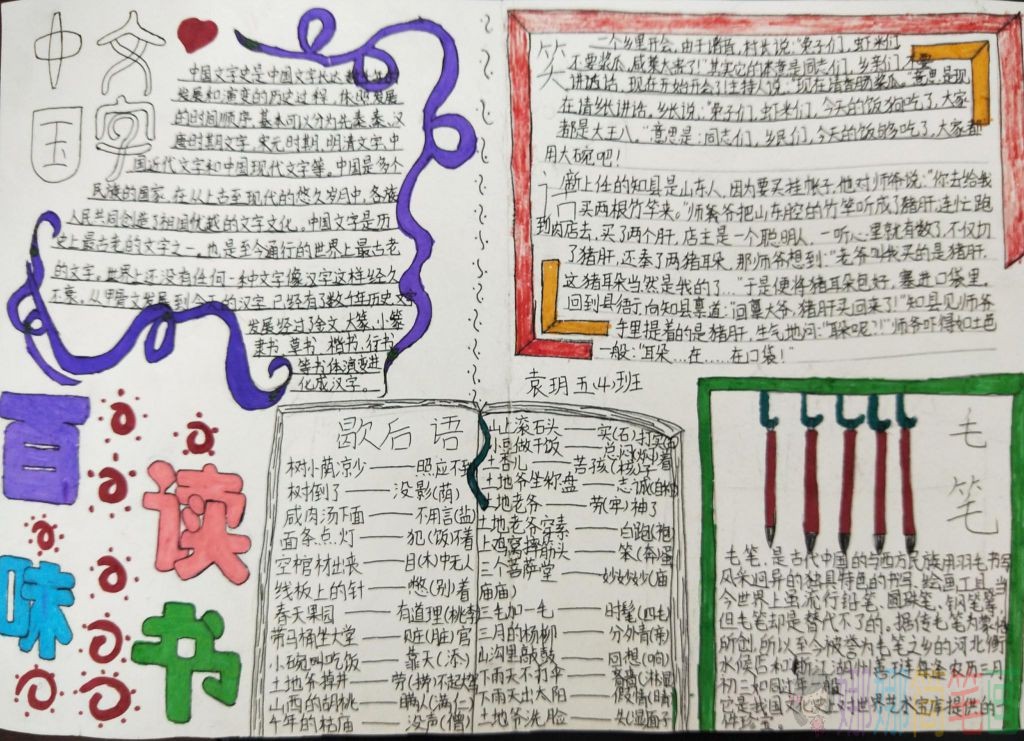 中国
文字
中国文字史是中国文字长达数
发展和演变的历史过程,依照发展
的时间顺序,基本可以分为先秦、秦、汉
唐时期文字,宋元时期,明清文字,中
国近代文字和中国现代文字等。中国是多个
民族的国家,在从上古至现代的悠久岁月中,各族
人民共同创造了祖国优越的文字文化。中国文字是历
史上最古老的文字之一。也是至今通行的世界上最古老
的文字。世界上还没有任何一种文字像汉字这样经久
不衰。从甲骨文发展到今天的汉字,已经有了数千年历史文字
发展经过了金文、大篆、小篆
隶书、草书、楷书、行书
等书体演变进
化成汉字。
笑
一个乡里开会,由于谱音,村长说:“兔子们,虾米们
不要酱瓜,咸菜太来了!”其实它的本意是同志们,乡亲们不要
讲话,现在开始开会了!主持人说:“现在请香肠酱瓜。”意思是现
在请乡长讲话。乡长说:“兔子们,虾米们,今天的饭狗吃了,大家
都是大王八。”意思是:同志们,乡民们,今天的饭够吃了,大家都
用大碗吧!
新上任的知县是山东人,因为要买挂帐子,他对师爷说:“你去给我
买两根竹竿来。”师爷把山东腔的竹竿听成了猪肝,连忙跑
到肉店去,买了两个肝,店主是一个聪明人,一听心里就有数了,不仅切
了猪肝,还奉了两猪耳朵,那师爷想到:“老爷叫我买的是猪肝,
这猪耳朵当然是我的了…”于是便将猪耳朵包好,塞进口袋里。
回到县衙,向知县禀道:“回禀大爷,猪肝买回来了!”知县见师爷
手里提着的是猪肝,生气地问:“耳朵呢?!”师爷吓得如土色
一般:“耳朵…在……在口袋!”
袁玥五(4)班
百
味
读
书
歇后语
树小荫凉少——照应不到
树倒了——没影(荫)
咸肉汤下面——不用言(盐)
面条点灯——犯(饭)不着
空棺材出来——目(木)中无人
线板上的针——憋(别)着
春天果园——有道理(桃李)
荷马桶坐大堂——赃(脏)官
小碗叫吃饭——靠天(添)
土地爷掉井——劳(捞)不起
山西的胡桃——瞒人(满仁)
千年的枯庙——没声(僧)
山上滚石头——实(石)打实(石)
小豆做干饭
土杏儿——苦孩(核)子
土地爷坐称盘——志诚
土地老爷——劳(牢)神了
土地老爷穿素——白跑(袍)
上鸡窝择筋头——笨(奔)蛋
三个菩萨堂——妙妙妙(庙
庙庙)
三毛加一毛——时髦(四毛)
三月的杨柳——分外青(亲)
山沟里敲鼓——回想(响)
下雨天不打伞
下雨天出太阳——假情(晴)
土地爷洗脸——失(湿)面子
毛
笔
毛笔,是古代中国的与西方民族用羽毛书写
风采迥异的独具特色的书写、绘画工具。当
今世界上虽流行铅笔、圆珠笔、钢笔等
但毛笔却是替代不了的。据传毛笔为蒙恬
所创,所以至今被誉为毛笔之乡的河北衡
水侯店和浙江湖州善琏每逢农历三月
初三如同过年一般
它是我国文化史上对世界艺术宝库提供的一
件珍宝。